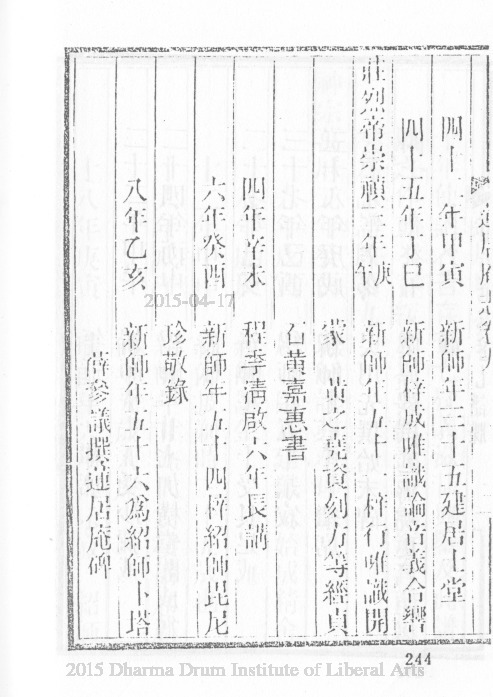 蓮居庵志卷九
四十二年甲寅 新師年三十五建居士堂
四十五年丁巳 新師梓成唯識論音義合響
莊烈帝崇禎三年庚午 新師年五十一梓行唯識開
蒙 黄之堯資刻方等經貞
石黄嘉惠書
四年辛未 程季清啟六年長講
六年癸酉 新師年五十四梓紹師毘尼
珍敬錄
八年乙亥 新師年五十六為紹師卜塔
薛參議撰蓮居庵碑
2015-04-17
244
2015 Dharma Drum Institute of Liberal Arts